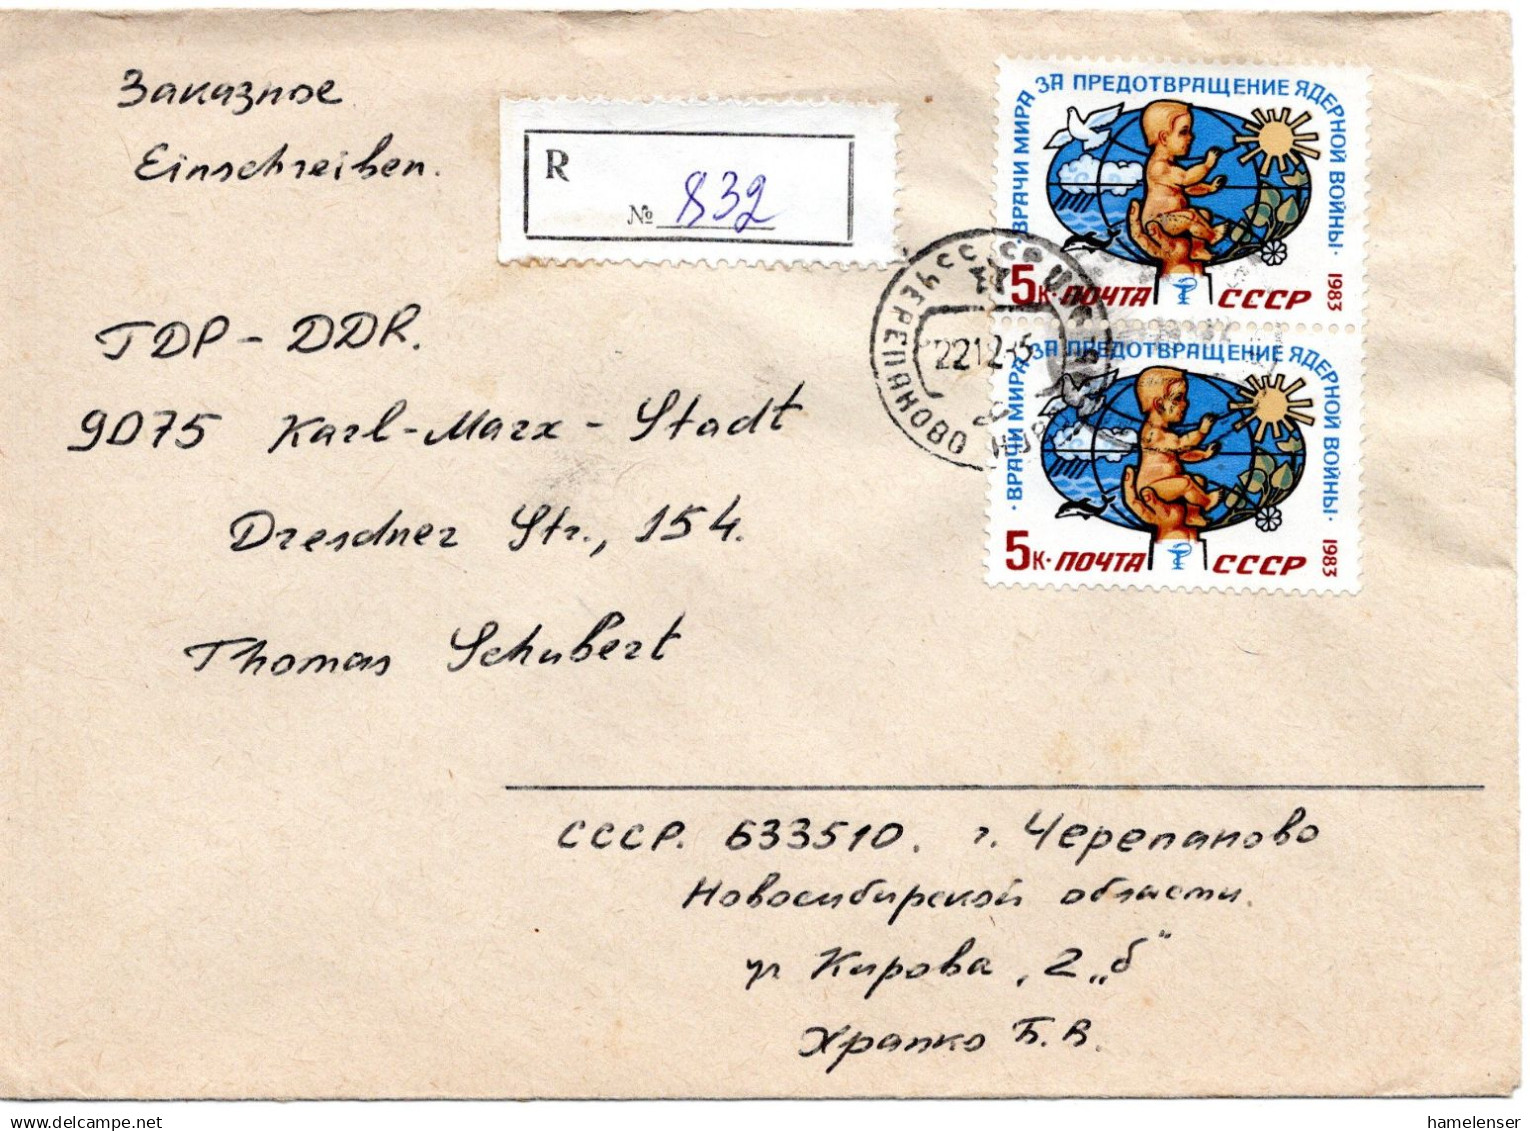 Заказное
Einschreiben.
R
№ 832
ГДР - DDR.
9075 Karl-Marx-Stadt
Dresdner Str., 154.
Thomas Schubert
· ВРАЧИ МИРА ЗА ПРЕДОТВРАЩЕНИЕ ЯДЕРНОЙ ВОЙНЫ ·
5к · ПОЧТА СССР 1983
· ВРАЧИ МИРА ЗА ПРЕДОТВРАЩЕНИЕ ЯДЕРНОЙ ВОЙНЫ ·
5к · ПОЧТА СССР 1983
СССР
ЧЕРЕПАНОВО
СССР. 633510. г. Черепаново
Новосибирской области.
ул Кирова, 2 „б"
Храпко Б.В.
hamelenser